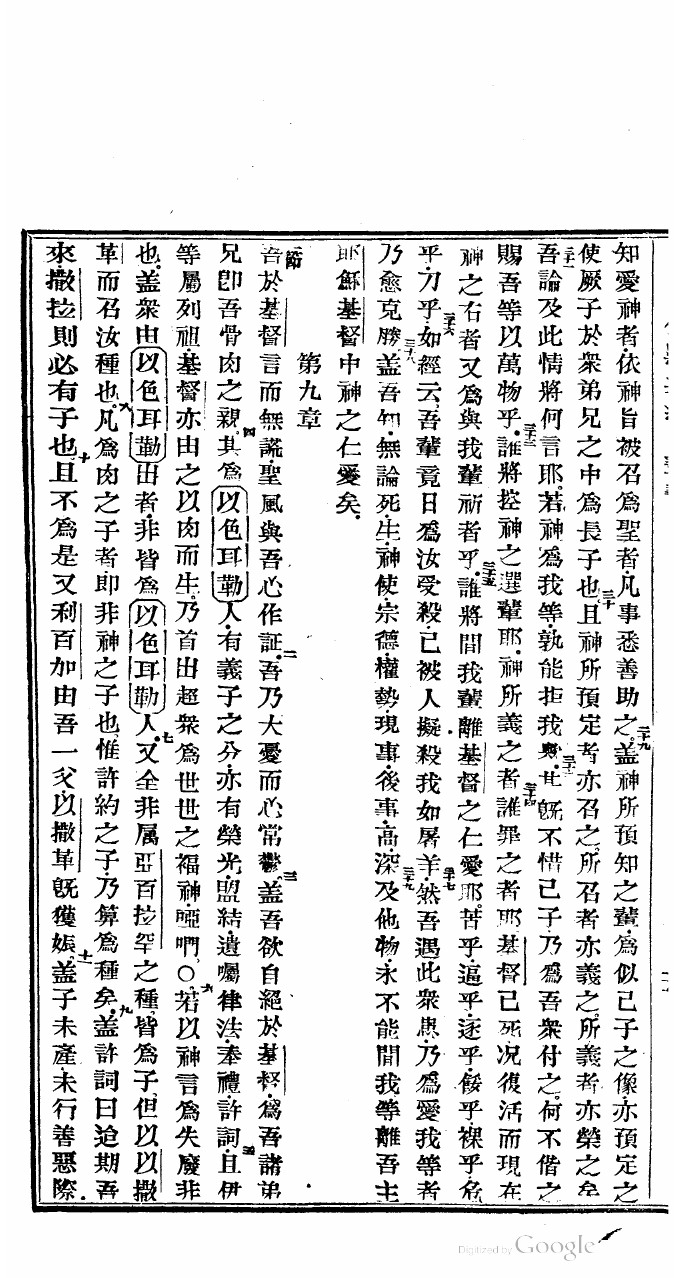 知愛神者依神旨被召爲聖者凡事悉善助之二十九蓋神所預知之輩爲似己子之像亦預定之
使厥子於衆弟兄之中爲長子也三十且神所預定者亦召之所召者亦義之所義者亦榮之矣
三十一吾論及此情將何言耶若神爲我等孰能拒我
旣不惜己子乃爲吾衆付之何不偕之
賜吾等以萬物乎三十三誰將控神之選輩耶神所義之者三十四誰罪之者耶基督已死况復活而現在
神之右者又爲與我輩祈者乎三十五誰將間我輩離基督之仁愛耶苦乎逼乎逐乎餒乎裸乎危
乎刀乎三十六如經云吾輩竟日爲汝受殺已被人擬殺我如屠羊三十七然吾遇此衆患乃爲愛我等者
乃愈克勝三十八蓋吾知無論死生神使宗德權勢現事後事高深三十九及他物永不能間我等離吾主
耶穌基督中神之仁愛矣
第九章
一節吾於基督言而無謊聖風與吾心作証二吾乃大憂而心常鬱三蓋吾欲自絕於基督爲吾諸弟
兄卽吾骨肉之親四其爲以色耳勒人有義子之分亦有榮光盟結遺囑律法奉禮許詞五且伊
等屬列祖基督亦由之以肉而生乃首出超衆爲世世之福神啞吧〇六若以神言爲失廢非
也蓋衆由以色耳勒出者非皆爲以色耳勒人七又全非属亞百拉罕之種皆爲子但以以撒
革而召汝種也八凡爲肉之子者即非神之子也惟許約之子乃算爲種矣九蓋許詞曰迨期吾
來撒拉則必有子也十且不爲是又利百加由吾一父以撒革旣獲娠十一蓋子未產未行善惡際
Digitized by Google